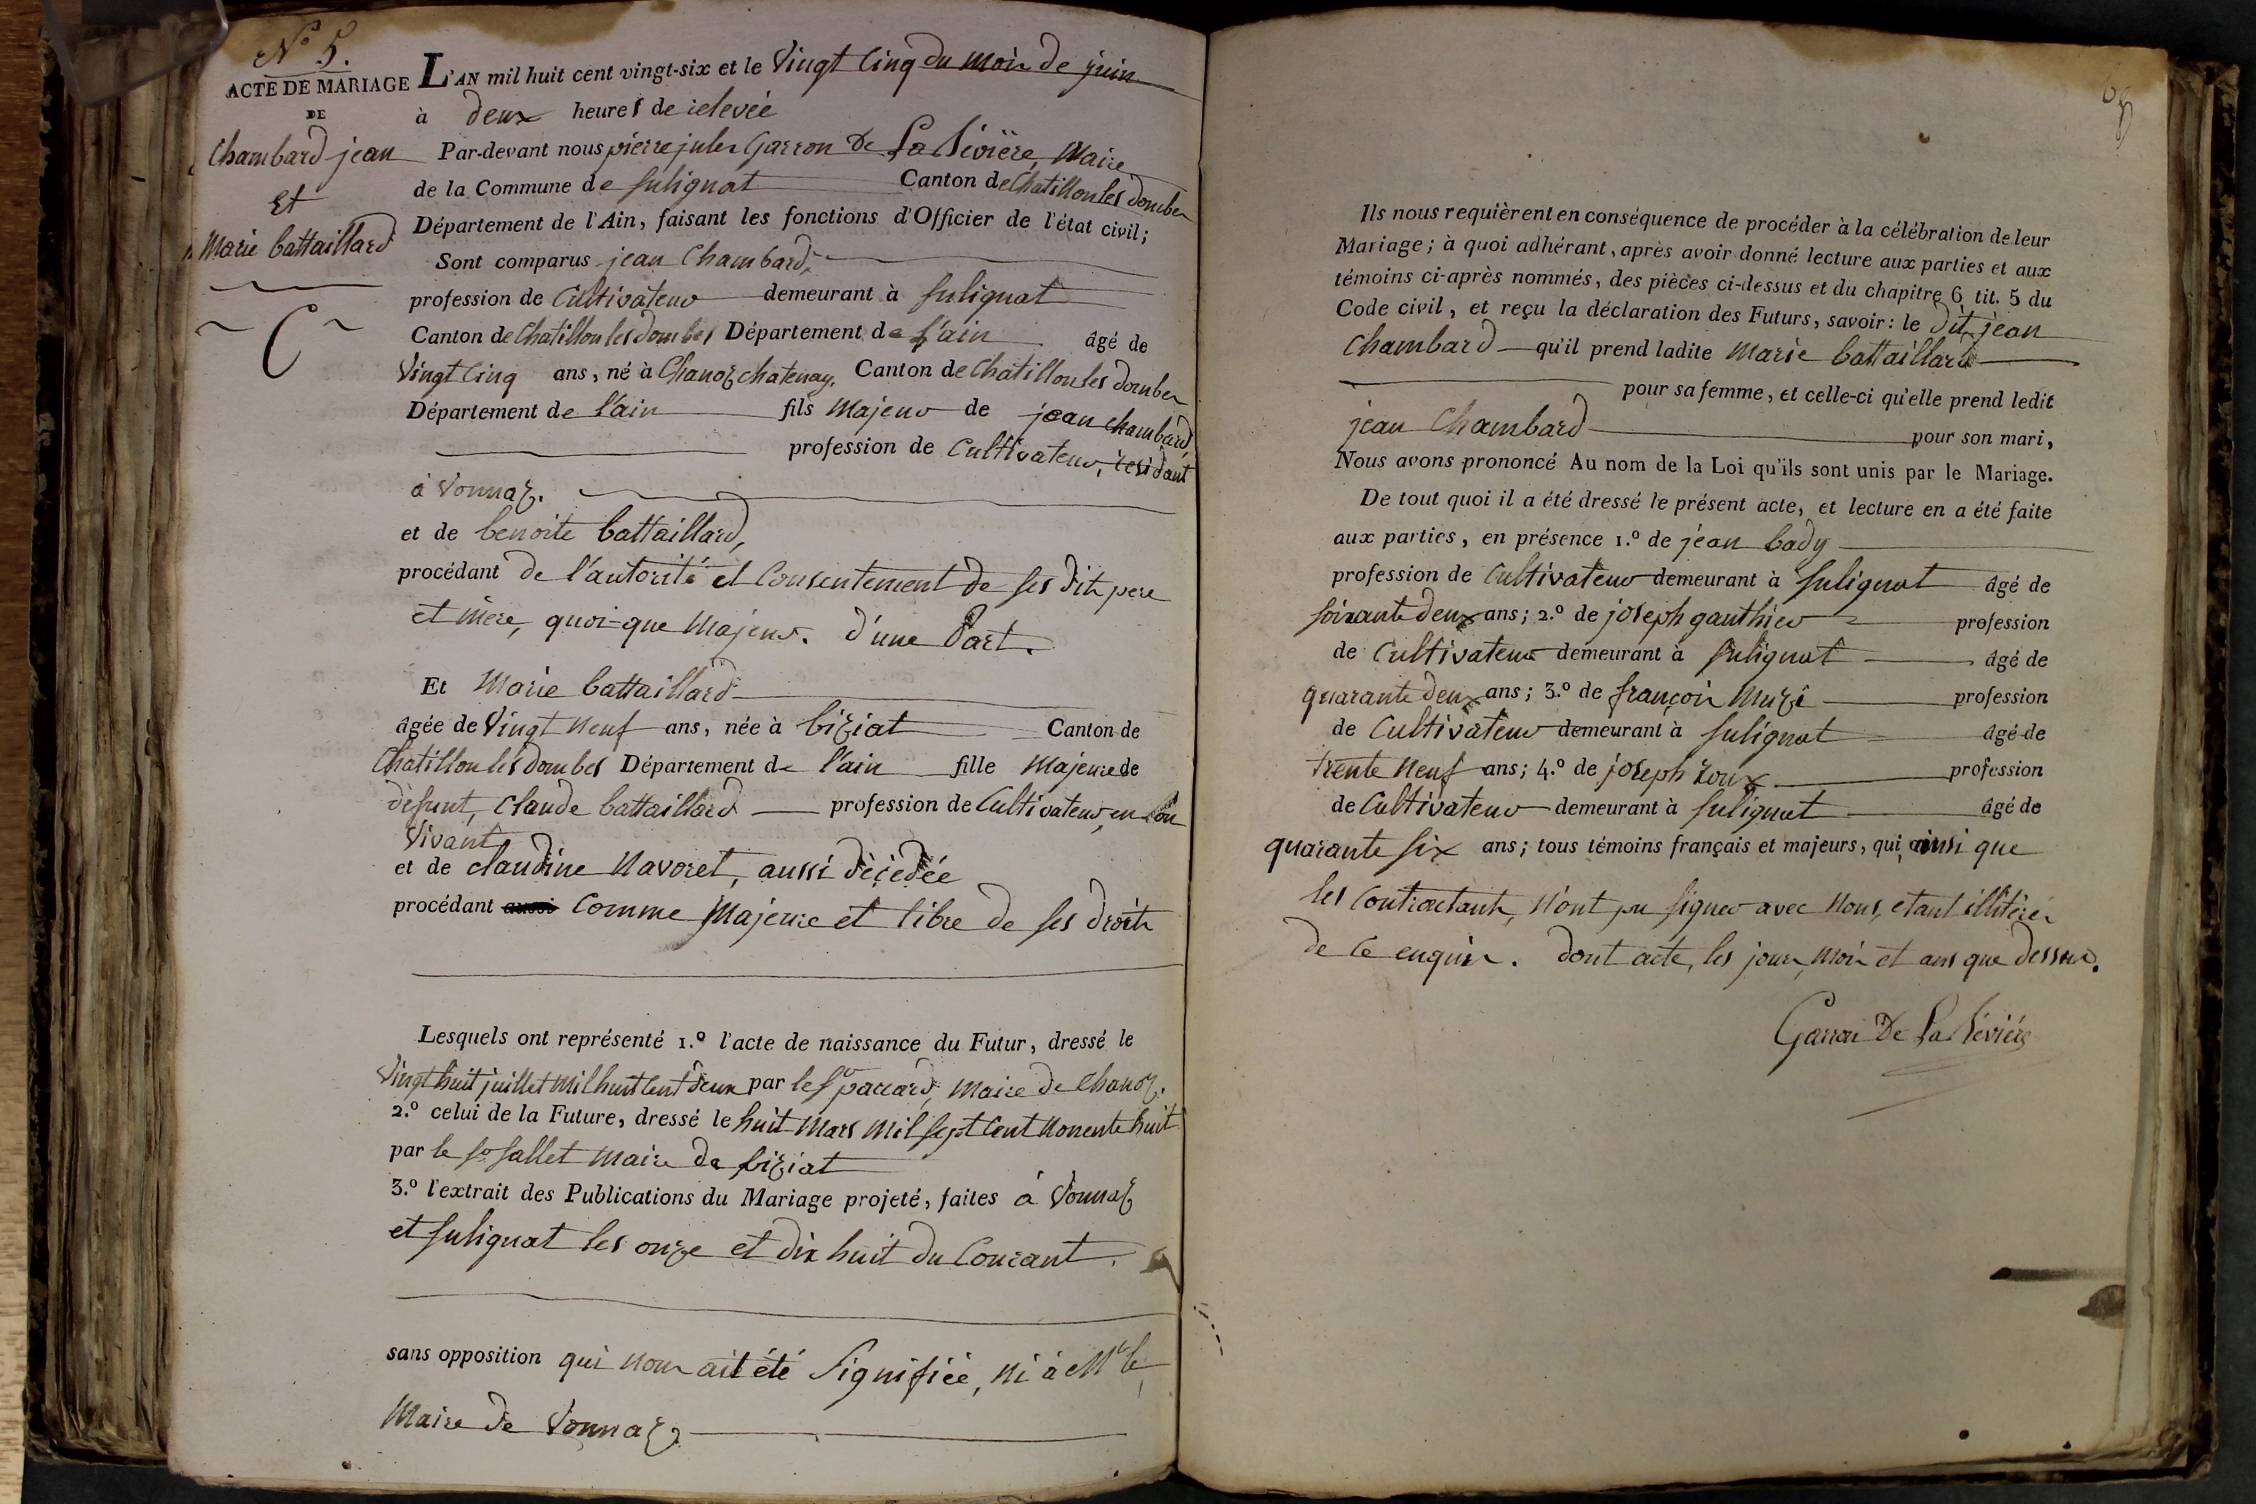 N° 5.
ACTE DE MARIAGE
DE
Chambard jean
Et
Marie battaillard
C
L'AN mil huit cent vingt-six et le Vingt Cinq du mois de juin
à deux heures de relevée
Par-devant nous pierre jules Garron de La Bévière, Maire
de la Commune de Sulignat Canton de Chatillon les dombes
Département de l'Ain, faisant les fonctions d'Officier de l'état civil;
Sont comparus jean Chambard,
profession de Cultivateur demeurant à Sulignat
Canton de Chatillon les dombes Département de l'ain âgé de
Vingt Cinq ans, né à Chanoz chatenay, Canton de Chatillon les dombes
Département de l'ain fils Majeur de jean chambard,
profession de Cultivateur, residant
à Vonnaz.
et de benoite battaillard,
procédant de l'autorité et Consentement de ses dits pere
et mère, quoi-que Majeur. d'une Part.
Et Marie battaillard
âgée de Vingt neuf ans, née à biziat Canton de
Chatillon les dombes Département de l'ain fille Majeure de
défunt, Claude battaillard profession de Cultivateur, en son
Vivant
et de claudine Navoret, aussi décédée
procédant aussi Comme Majeure et libre de ses droits
Lesquels ont représenté 1.º l'acte de naissance du Futur, dressé le
Vingt huit juillet Mil huit Cent deux par le Sr paccard, Maire de Chanoz.
2.º celui de la Future, dressé le huit Mars Mil Sept Cent Nonente huit
par le Sr Sallet Maire de biziat
3.º l'extrait des Publications du Mariage projeté, faites à Vonnaz
et Sulignat les onze et dix huit du Courant.
sans opposition qui nous ait été Signifiée, ni à Mr le
Maire de Vonnaz
Ils nous requièrent en conséquence de procéder à la célébration de leur
Mariage; à quoi adhérant, après avoir donné lecture aux parties et aux
témoins ci-après nommés, des pièces ci-dessus et du chapitre 6, tit. 5 du
Code civil, et reçu la déclaration des Futurs, savoir: le dit jean
Chambard qu'il prend ladite Marie battaillard
pour sa femme, et celle-ci qu'elle prend ledit
jean Chambard pour son mari,
Nous avons prononcé Au nom de la Loi qu'ils sont unis par le Mariage.
De tout quoi il a été dressé le présent acte, et lecture en a été faite
aux parties, en présence 1.º de jean bady
profession de Cultivateur demeurant à Sulignat âgé de
soixante deux ans; 2.º de joseph gauthier profession
de Cultivateur demeurant à Sulignat âgé de
quarante deux ans; 3.º de françois Muzi profession
de Cultivateur demeurant à Sulignat âgé de
trente Neuf ans; 4.º de joseph roux profession
de Cultivateur demeurant à Sulignat âgé de
quarante Six ans; tous témoins français et majeurs, qui, ainsi que
les Contractants, N'ont pu Signer avec Nous, etant illitérés
de Ce enquis. dont acte, les jour, Mois et ans que dessus.
Garron De La Bévière